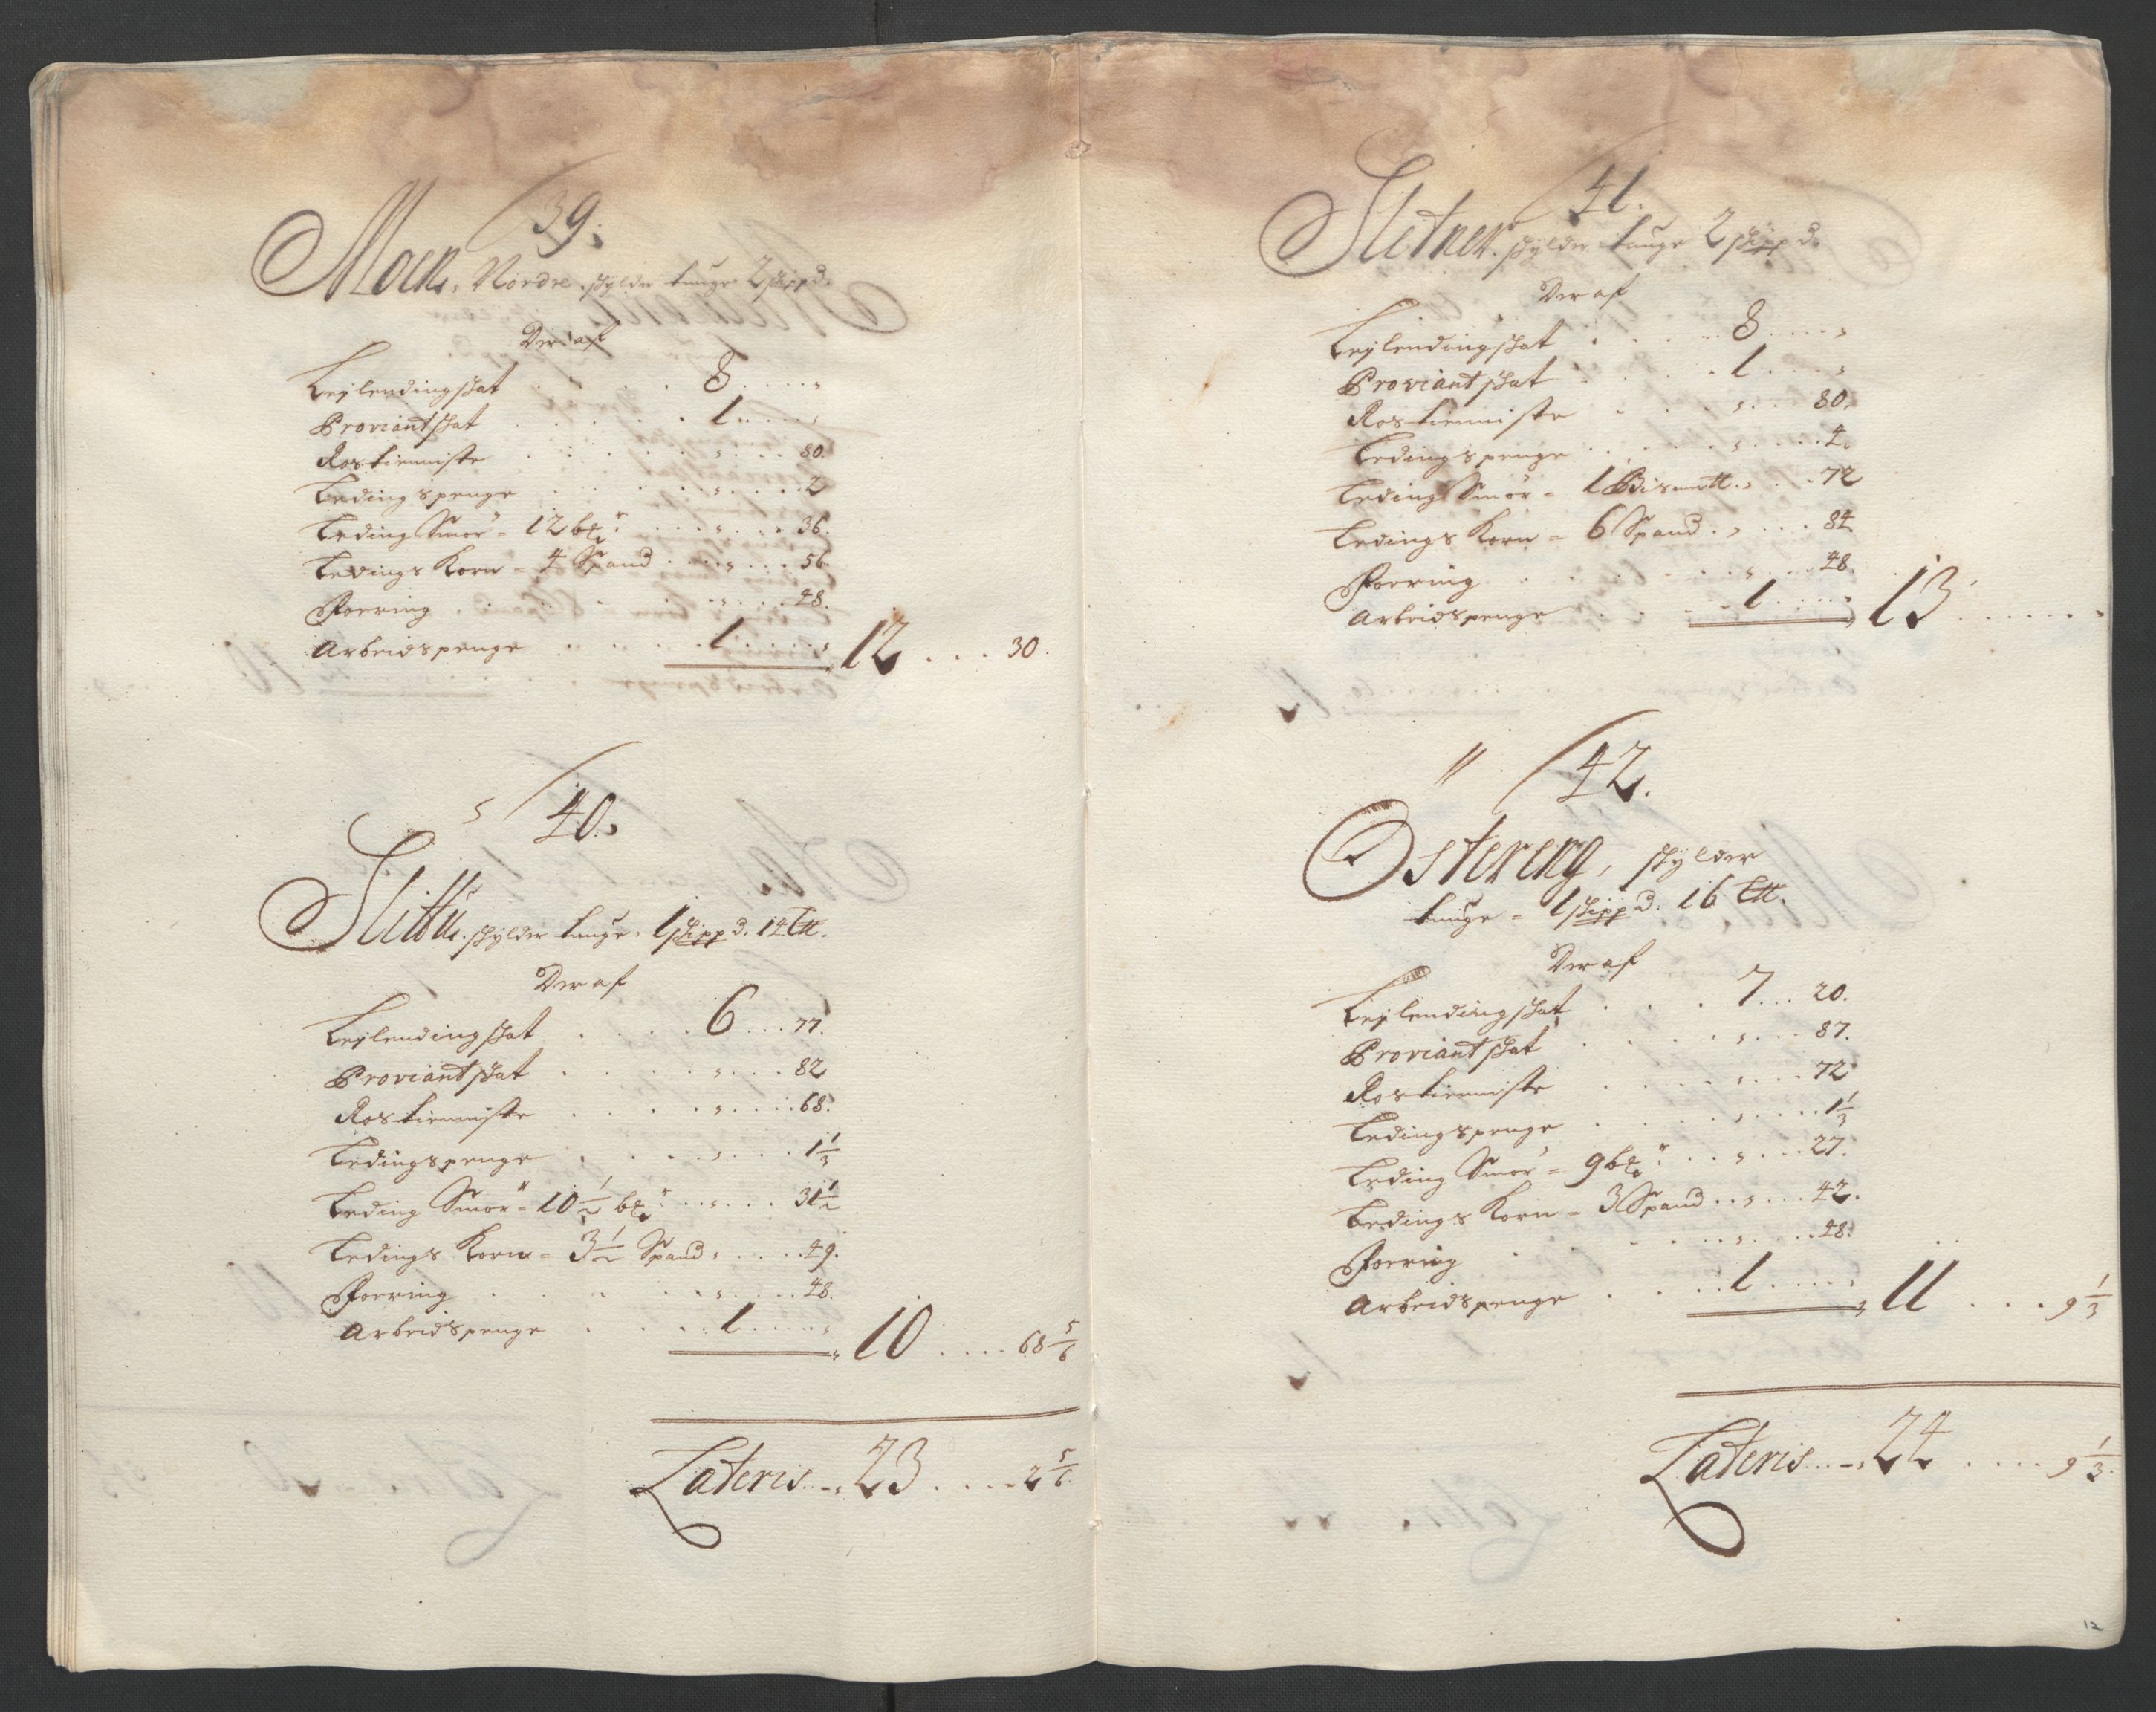 39.
Moen, Nordre. skylder tunge 2 skippd.
Der af
Leylendingskat . . . . 8 . . . . "
Proviantskat . . . . 1 . . . . "
Rostienniste . . . . " . . . 80.
Ledingspenge . . . . " . . . 2
Leding Smör = 12 b℔r . . . " . . . 36.
Ledings Korn = 4 Spand . . . " . . . 56
Foering . . . . " . . . 48.
Arbeidspenge . . . . 1 . . . . " 12 . . . 30.
40.
Slittu. skylder tunge = 1 skippd. 14 L℔.
Der af
Leylendingskat . . . . 6 . . . 77.
Proviantskat . . . . " . . . 82
Rostienniste . . . . " . . . 68.
Ledingspenge . . . . " . . . 1 1/3
Leding Smör = 10 1/2 b℔r . . . " . . . 31 1/2
Ledings Korn = 3 1/2 Spand " . . . 49.
Foering . . . . " . . . 48.
Arbeidspenge . . . . 1 . . . . " 10 . . . . 68 5/6
Lateris . . 23 . . . . 2 5/6
41.
Slitner. skylder tunge 2 skippd.
Der af
Leylendingskat . . . . 8 . . . . "
Proviantskat . . . . 1 . . . . "
Rostienniste . . . . " . . . 80.
Ledingspenge . . . . " . . . 4.
Leding Smör = 1 Bismer℔ . " . . . 72
Ledings Korn = 6 Spand . " . . . 84.
Foering . . . . " . . . 48.
Arbeidspenge . . . . 1 . . . . " 13 . . . . . "
42.
Ostereng, skylder
tunge = 1 skippd. 16 L℔.
Der af
Leylendingskat . . . . 7 . . . 20.
Proviantskat . . . . " . . . 87.
Rostienniste . . . . " . . . 72
Ledingspenge . . . . " . . . 1 1/3
Leding Smör = 9 b℔r . . . " . . . 27.
Ledings Korn = 3 Spand . . " . . . 42.
Foering . . . . " . . . 48.
Arbeidspenge . . . . 1 . . . . " 11 . . . 9 1/3
Lateris . . 24 . . . . 9 1/3.
12